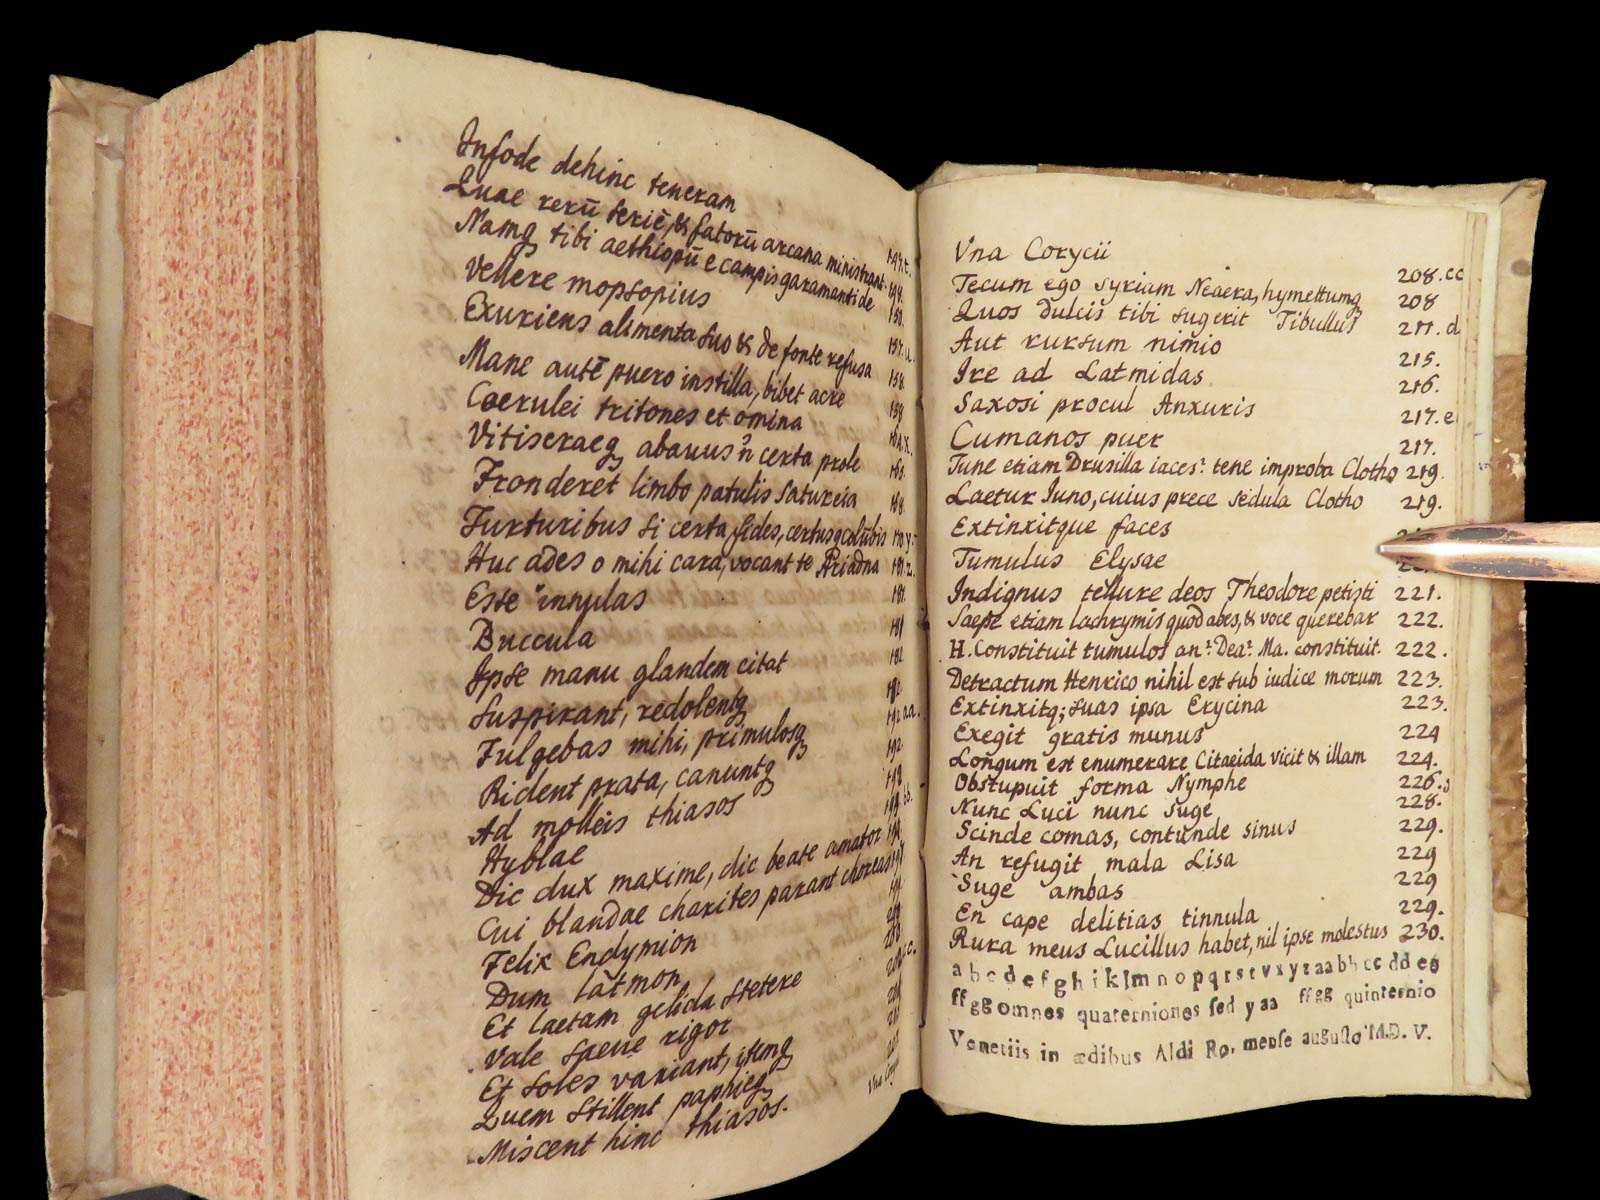 Infode dehinc teneram
Quae rerū seriē, & fatorū arcana ministrant. 147.t.
Namq tibi aethiopū e campis garamantide 148.
Vellere mopsopius 150.
Exuriens alimenta suo & de fonte refusa 157.u.
Mane autē puero instilla, bibet acre 158.
Coerulei tritones et omina 159
Vitiseraeq abauus certa prole 164.x.
Fronderet limbo patulis satureia 165.
Furturibus si certa fides, certusq colūbis 168.
Huc ades o mihi cara, vocant te Ariadna 170.y.
Esse innulas 181.z.
Buccula 181.
Ipse manu glandem citat 181
Suspirant, redolentq 182.
Fulgebas mihi, primulosq 182.
Rident prata, canuntq 192 aa.
Ad molleis thiasos 192.
Hyblae 192
Dic dux maxime, dic beate amator
Cui blandae charites parant choreas
Felix Endymion
Dum latmon
Et laetam gelida stetere
Vale saeue rigor
Et soles variant, itemq
Quem stillent paphieq
Miscent hinc thiasos.
Vna Cory
Vna Corycii 208.cc
Tecum ego syriam Neaera, hymettumq 208
Quos dulcis tibi sugerit Tibullus 211.d
Aut rursum nimio 215.
Ire ad Latmidas 216.
Saxosi procul Anxuris 217.e
Cumanos puer 217.
Tune etiam Drusilla iaces? tene improba Clotho 219.
Laetur Iuno, cuius prece sedula Clotho 219.
Extinxitque faces
Tumulus Elysae
Indignus tellure deos Theodore petisti 221.
Saepe etiam lachrymis quod abes, & voce querebar 222.
H. Constituit tumulos an? Dea? Ma. constituit. 222.
Detractum Henrico nihil est sub iudice morum 223.
Extinxitq; suas ipsa Erycina 223.
Exegit gratis munus 224
Longum est enumerare Citaeida vicit & illam 224.
Obstupuit forma Nymphe 226.
Nunc Luci nunc suge 228.
Scinde comas, contunde sinus 229.
An refugit mala Lisa 229
Suge ambas 229
En cape delitias tinnula 229.
Rura meus Lucillus habet, nil ipse molestus 230.
a b c d e f g h i k l m n o p q r s t v x y z aa bb cc dd ee
ff gg omnes quaterniones sed y aa ff gg quinternio
Venetiis in ædibus Aldi Ro. mense augusto M.D.V.